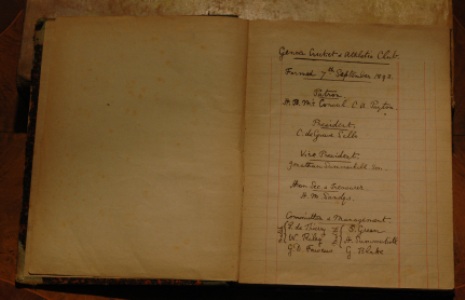 Genoa Cricket & Athletic Club.
Formed 7th September 1893.
Patron.
H. B. M's Consul C. A. Payton.
President.
C. de Grave Sells
Vice President.
Jonathan Summerhill Sen.
Hon Sec & Treasurer
Committee of Management.
S. Green
W. Riley
G. D. Fawcus G Blake